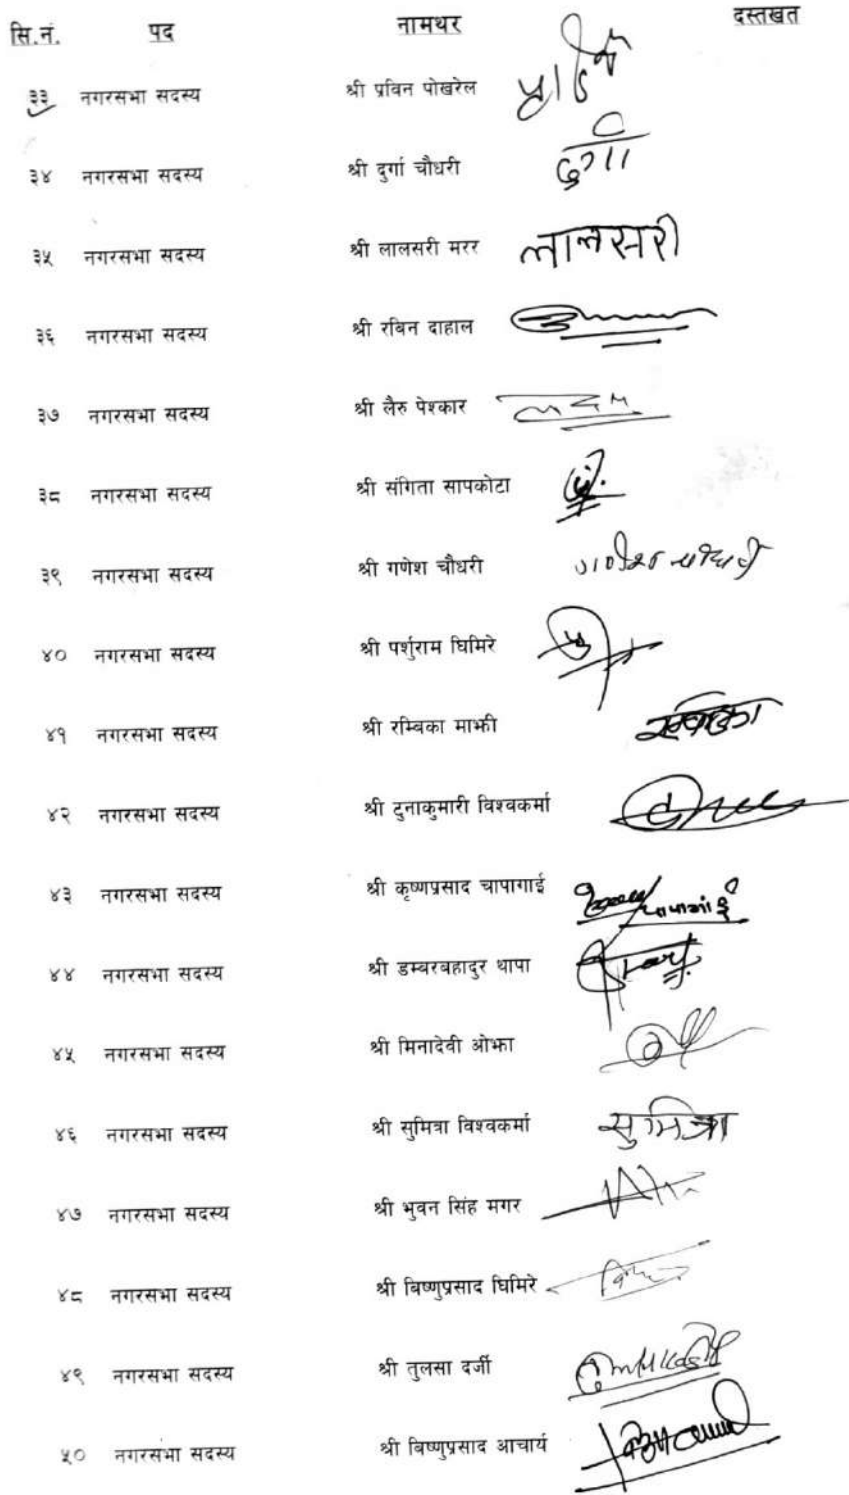 सि.नं. पद नामथर दस्तखत
३३ नगरसभा सदस्य श्री प्रविन पोखरेल
३४ नगरसभा सदस्य श्री दुर्गा चौधरी दुर्गा
३५ नगरसभा सदस्य श्री लालसरी मरर लालसरी
३६ नगरसभा सदस्य श्री रबिन दाहाल
३७ नगरसभा सदस्य श्री लैरु पेश्कार
३८ नगरसभा सदस्य श्री संगिता सापकोटा
३९ नगरसभा सदस्य श्री गणेश चौधरी गणेश चौधरी
४० नगरसभा सदस्य श्री पर्शुराम घिमिरे
४१ नगरसभा सदस्य श्री रम्बिका माझी
४२ नगरसभा सदस्य श्री दुनाकुमारी विश्वकर्मा
४३ नगरसभा सदस्य श्री कृष्णप्रसाद चापागाई चापागाई
४४ नगरसभा सदस्य श्री डम्बरबहादुर थापा
४५ नगरसभा सदस्य श्री मिनादेवी ओझा
४६ नगरसभा सदस्य श्री सुमित्रा विश्वकर्मा सुमित्रा
४७ नगरसभा सदस्य श्री भुवन सिंह मगर
४८ नगरसभा सदस्य श्री बिष्णुप्रसाद घिमिरे
४९ नगरसभा सदस्य श्री तुलसा दर्जी
५० नगरसभा सदस्य श्री बिष्णुप्रसाद आचार्य